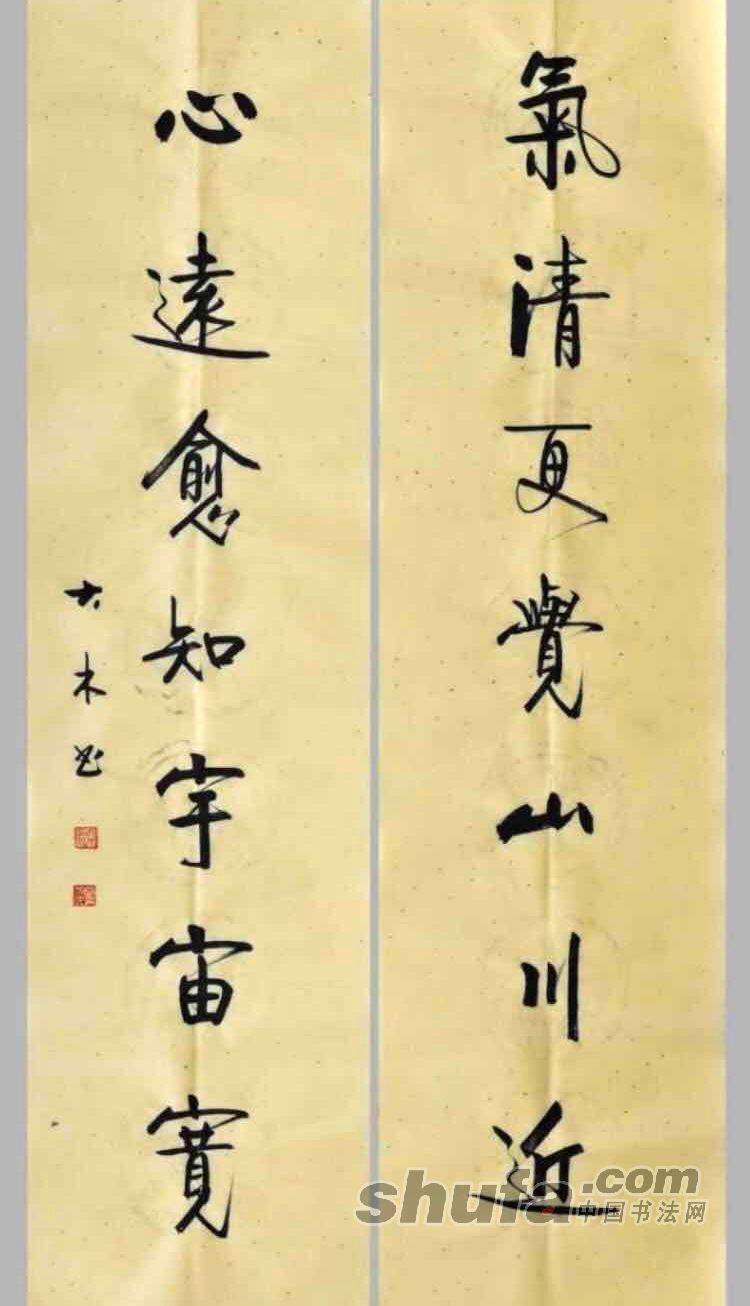 氣清更覺山川近
心遠愈知宇宙寬
大木書
shufa.com
中国书法网